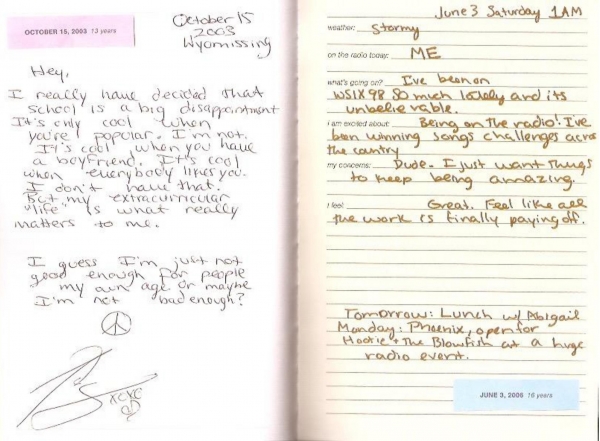 OCTOBER 15, 2003 13 years
October 15
2003
Wyomissing
Hey,
I really have decided that
school is a big disappointment
It's only cool when
you're popular. I'm not.
It's cool when you have
a boyfriend. It's cool
when everybody likes you.
I don't have that.
But my extracurricular
"life" is what really
matters to me.
I guess I'm just not
good enough for people
my own age or maybe
I'm not bad enough?
June 3 Saturday 1AM
weather: Stormy
on the radio today: ME
what's going on? I've been on
WSIX 98 so much lately and its
unbelievable.
I am excited about: Being on the radio! I've
been winning songs challenges across
the country
my concerns: Dude. I just want things
to keep being amazing.
I feel: Great. Feel like all
the work is finally paying off.
Tomorrow: Lunch w/ Abigail
Monday: Phoenix, open for
Hootie + The Blowfish at a huge
radio event.
JUNE 3, 2006 16 years